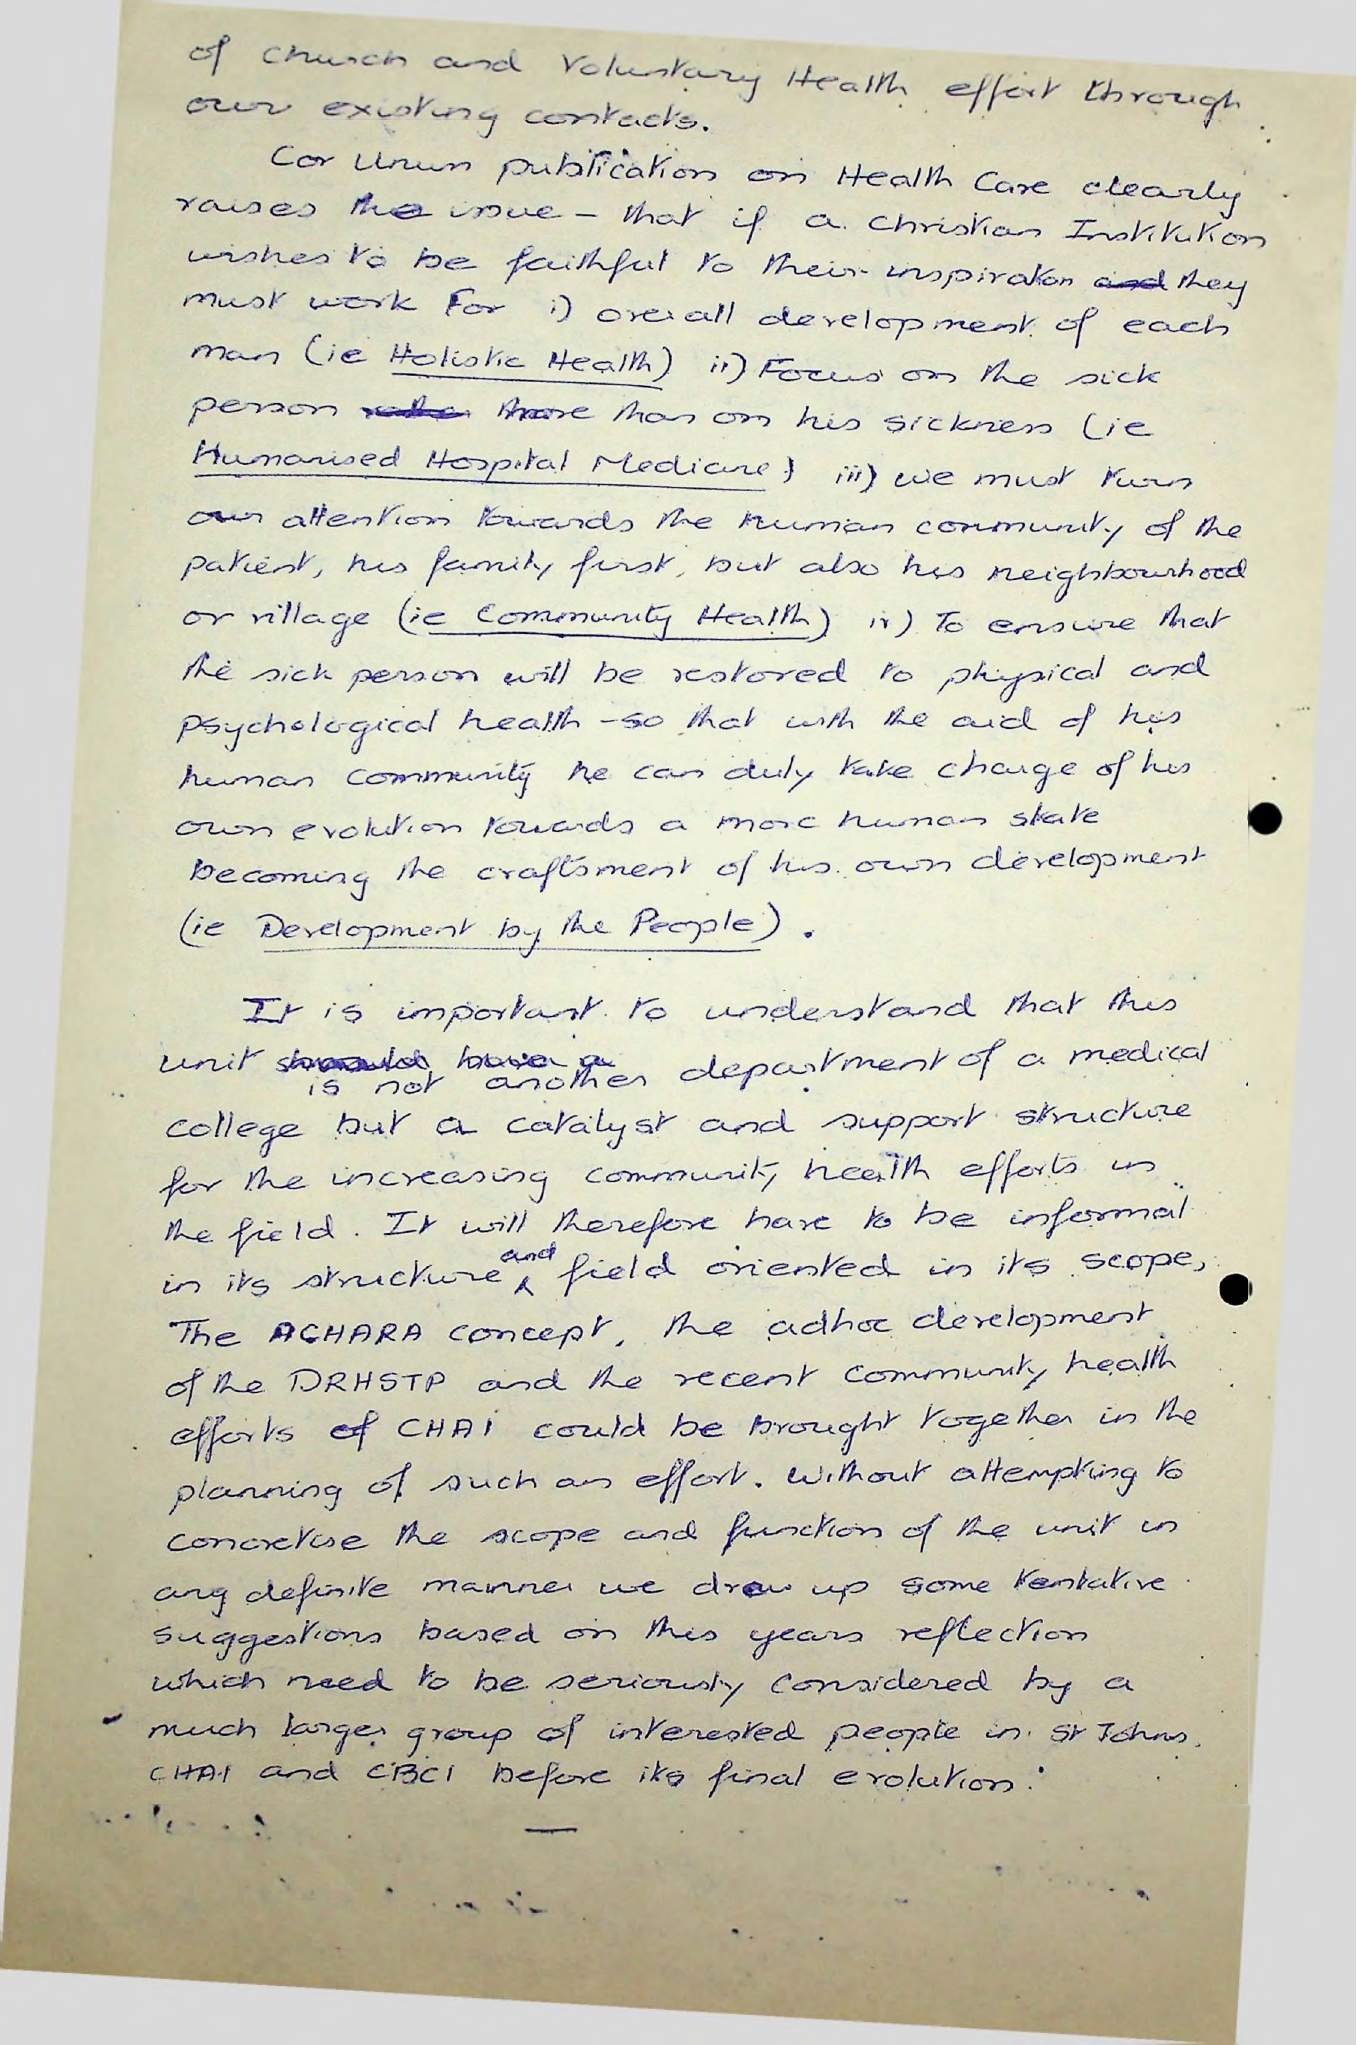 of Church and Voluntary Health effort through
our existing contacts.
Cor Unum publication on Health Care clearly
raises the issue - that if a Christian Institution
wishes to be faithful to their inspiration and they
must work For i) overall development of each
man (ie Holistic Health) ii) Focus on the sick
person more than on his sickness (ie
Humanised Hospital Medicine) iii) we must turn
our attention towards the human community of the
patient, his family first, but also his neighbourhood
or village (ie Community Health) iv) To ensure that
the sick person will be restored to physical and
psychological health - so that with the aid of his
human community he can duly take charge of his
own evolution towards a more human state
becoming the craftsment of his own development
(ie Development by the People).
It is important to understand that this
unit should have a department of a medical
is not another
college but a catalyst and support structure
for the increasing community health efforts in
the field. It will therefore have to be informal
in its structure and field oriented in its scope,
The ACHARA concept, the adhoc development
of the DRHSTP and the recent community health
efforts of CHAI could be brought together in the
planning of such an effort. Without attempting to
concretise the scope and function of the unit in
any definite manner we draw up some tentative
suggestions based on this years reflection
which need to be seriously considered by a
much larger group of interested people in St Johns,
CHAI and CBCI before its final evolution.